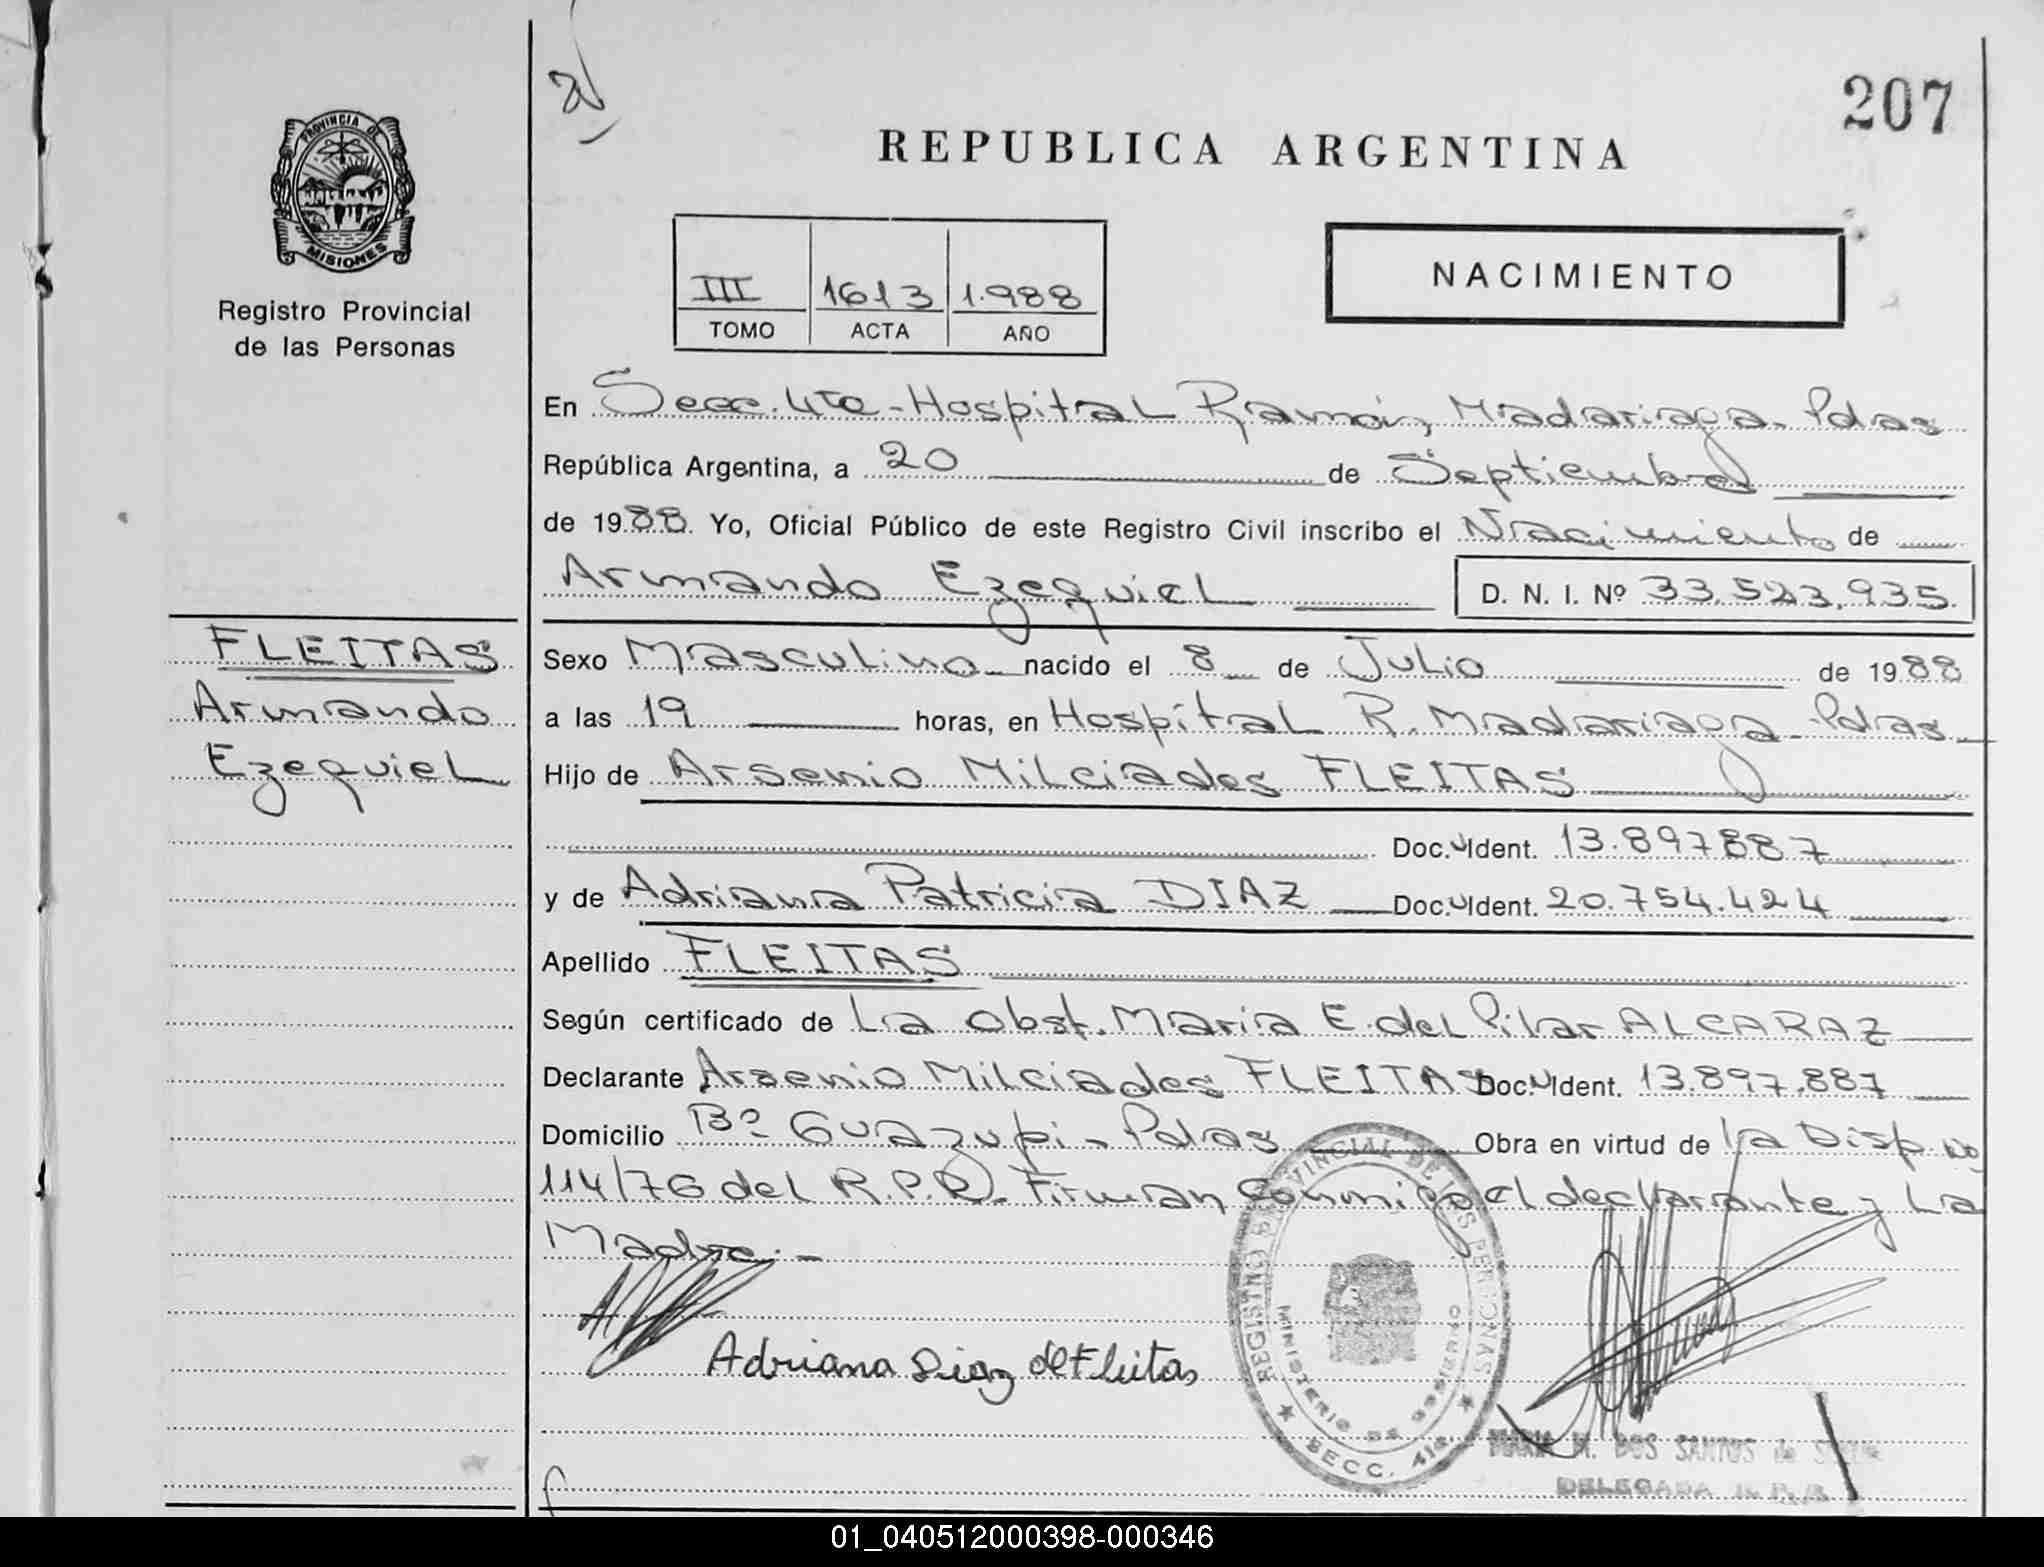 207
REPUBLICA ARGENTINA
PROVINCIA DE
MISIONES
Registro Provincial
de las Personas
III 1613 1.988
TOMO ACTA AÑO
NACIMIENTO
En Secc. 4ta - Hospital Ramón Madariaga - Pdas
República Argentina, a 20 de Septiembre
de 1988. Yo, Oficial Público de este Registro Civil inscribo el Nacimiento de
Armando Ezequiel D. N. I. Nº 33.523.935.
FLEITAS
Armando
Ezequiel
Sexo Masculino nacido el 8 de Julio de 1988
a las 19 horas, en Hospital R. Madariaga - Pdas
Hijo de Arsenio Milciades FLEITAS
Doc. Ident. 13.897887
y de Adriana Patricia DIAZ Doc. Ident. 20.754.424
Apellido FLEITAS
Según certificado de La Obst. Maria E. del Pilar ALCARAZ
Declarante Arsenio Milciades FLEITAS Doc. Ident. 13.897.887
Domicilio Bº Guazupi - Pdas Obra en virtud de La Disp. Nº
114/76 del R.P.P. Firman conmigo el declarante y La
Madre. -
Adriana Diaz de Fleitas
REGISTRO PROVINCIAL DE LAS PERSONAS
MINISTERIO DE GOBIERNO
SECC. 4ta
MARIA M. DOS SANTOS de
DELEGADA R.P.P.
01_040512000398-000346